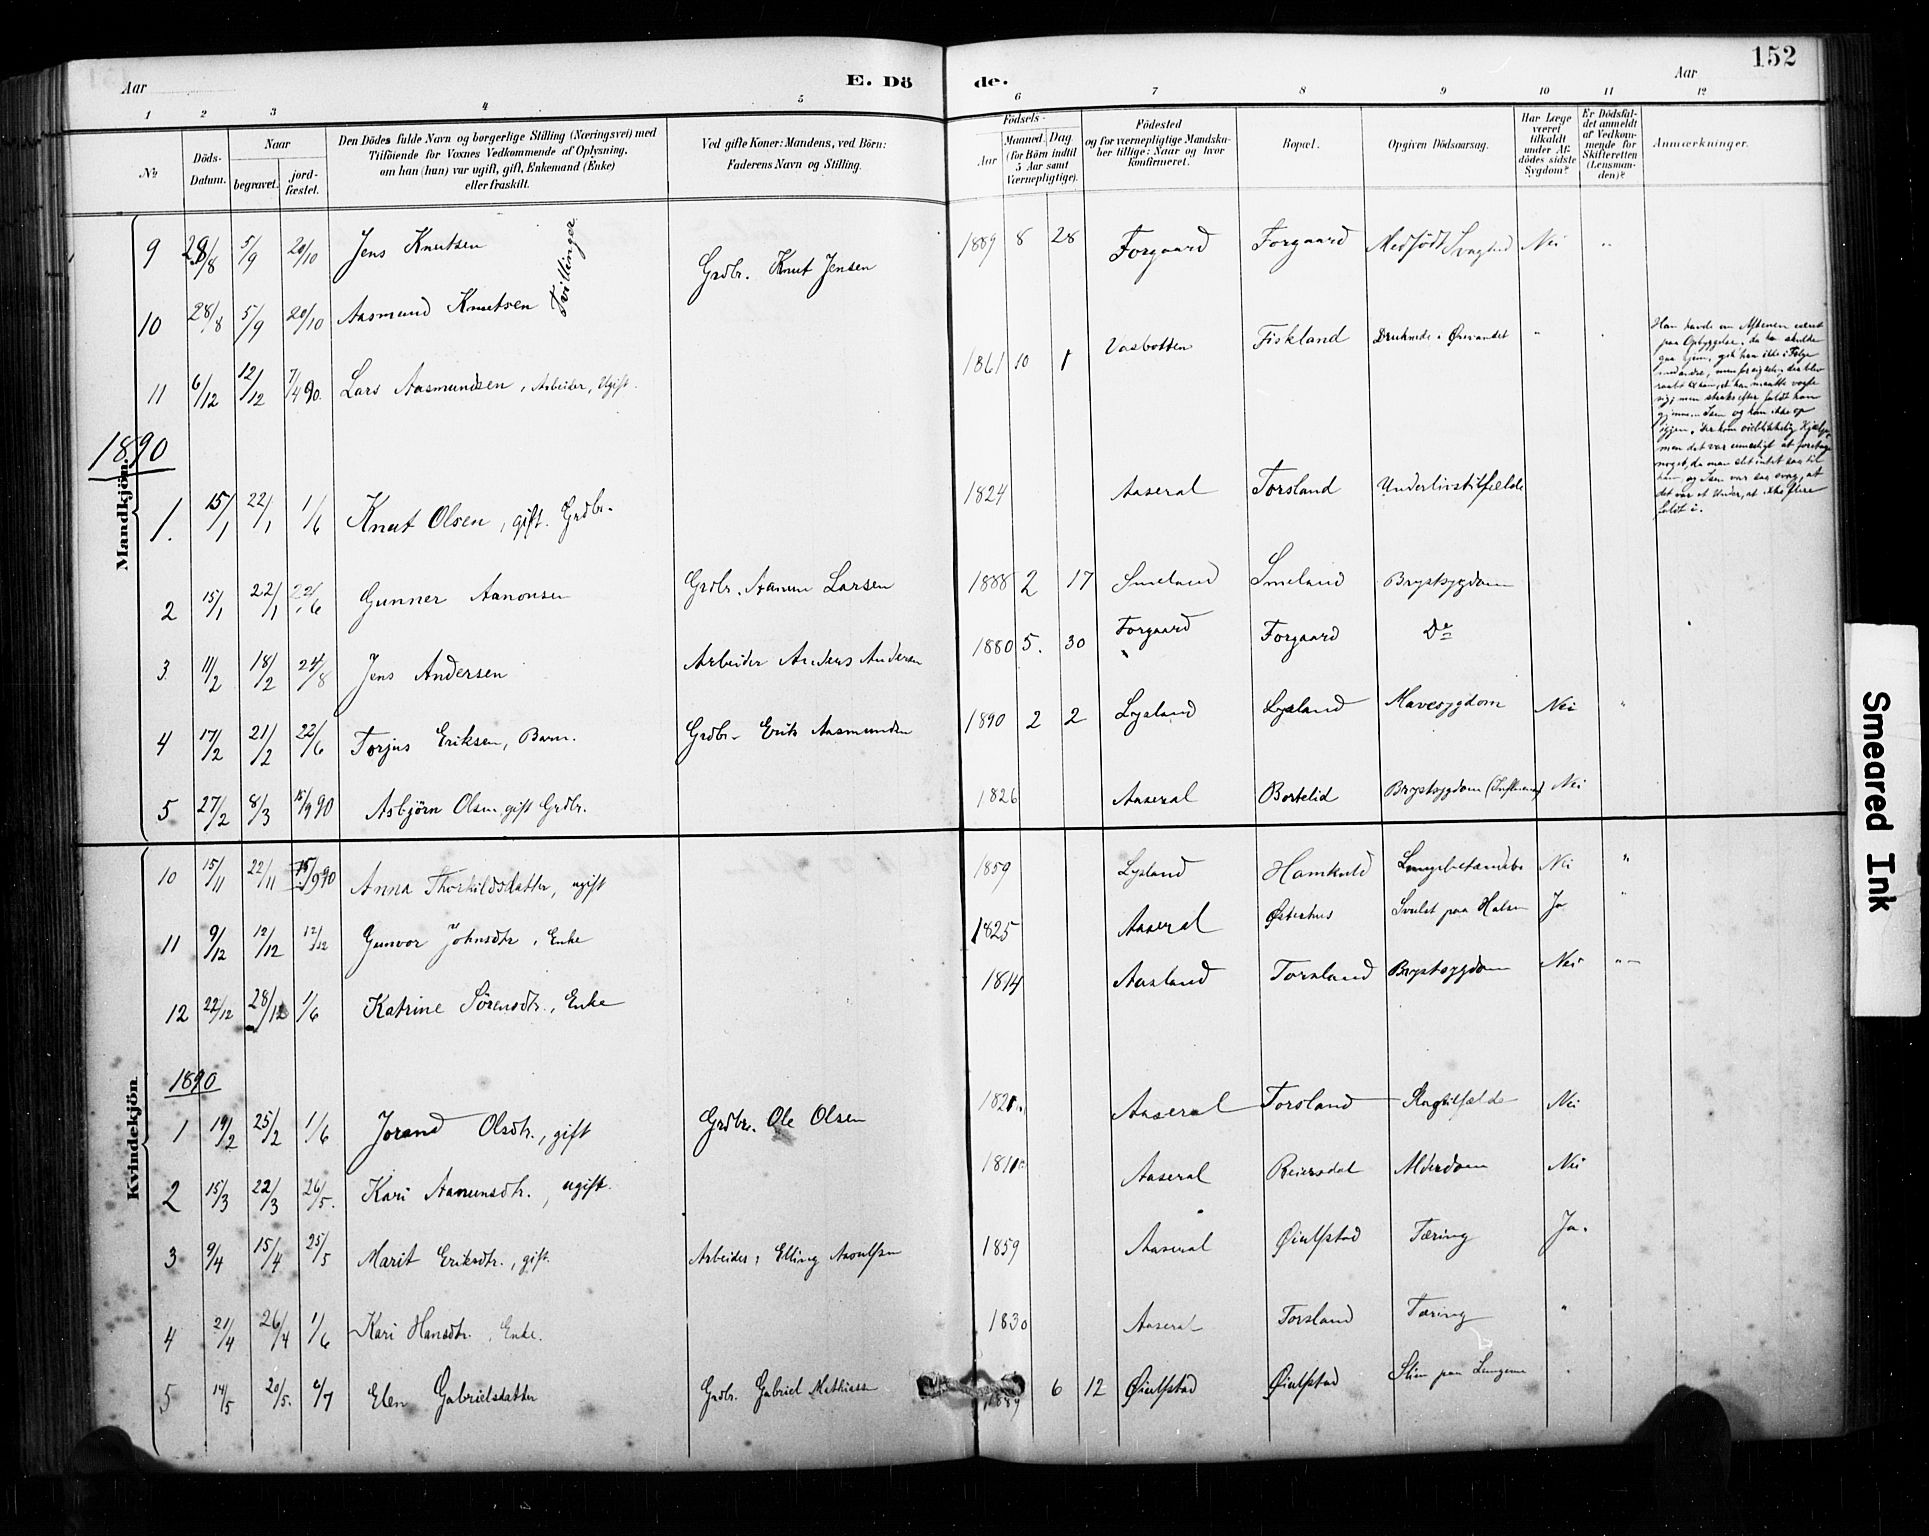 152
Aar
E. Dö
de.
Aar
1 2 3 4 5 6 7 8 9 10 11 12
No
Döds-Datum.
Naar
begravet.
jord-fæstet.
Den Dödes fulde Navn og borgerlige Stilling (Næringsvei) med
Tilföiende for Voxnes Vedkommende af Oplysning,
om han (hun) var ugift, gift, Enkemand (Enke)
eller fraskilt.
Ved gifte Koner: Mandens, ved Börn:
Faderens Navn og Stilling.
Födsels-
Aar
Maaned
Dag
(for Börn indtil
5 Aar samt
Værnepligtige).
Födested
og for værnepligtige Mandska-
ber tillige: Naar og hvor
konfirmeret.
Bopæl.
Opgiven Dödsaarsag.
Har Læge
været
tilkaldt
under Af-
dödes sidste
Sygdom?
Er Dödsfal-
det anmeldt
af Vedkom-
mende for
Skifteretten
(Lensman-
den)?
Anmærkninger.
Mandkjön.
9 28/8 5/9 20/10 Jens Knutsen Tvillinger Grdbr. Knut Jensen 1889 8 28 Forgaard Forgaard Medfödt Svaghed Nei "
10 28/8 5/9 20/10 Aasmund Knutsen
11 6/12 12/12 7/4 90. Lars Aasmundsen, Arbeider, Ugift. 1861 10 1 Vasbotten Fiskland Druknede i Ørevandet "
Han havde om Aftenen været
paa Opbyggelse, da han skulde
gaa hjem, gik han ikke i Følge
med andre, men for sig selv, der blev
raabt til ham, at han maatte vogte
sig; men straks efter faldt han
gjennem Isen og kom ikke op
igjen. Der kom øieblikkelig Hjælp,
men det var umuligt at foretage
noget, da man slet intet saa til
ham og Isen var saa svag, at
det var et Under, at ikke flere
faldt i.
1890
1. 15/1 22/1 1/6 Knut Olsen, gift. Grdbr. 1824 Aaseral Torsland Underlivstilfælde
2 15/1 22/1 22/6 Gunner Aanonsen Grdbr. Aanon Larsen 1888 2 17 Smeland Smeland Brystsygdom
3. 11/2 18/2 24/8 Jens Andersen Arbeider Anders Andersen 1880 5. 30 Forgaard Forgaard Do
4 17/2 21/2 22/6 Torjus Eriksen, Barn. Grdbr. Erik Aasmundsen 1890 2 2 Lyeland Lyeland Mavesygdom Nei "
5 27/2 8/3 15/9 90 Asbjörn Olsen gift Grdbr. 1826 Aaseral Bortelid Brystsygdom (Influenza) Nei
Kvindekjön.
10 15/11 22/11 15/9 90 Anna Thorkildsdatter, ugift 1859 Lyeland Hamkold Lungebetændelse Nei "
11 9/12 12/12 12/12 Gunvor Johnsdtr, Enke 1825 Aaseral Østerhus Svulst paa Halsen Ja "
12 22/12 28/12 1/6 Katrine Sörensdtr., Enke 1814 Aasland Torsland Brystsygdom Nei "
1890
1 19/2 25/2 1/6 Jorand Olsdtr., gift Grdbr. Ole Olsen Aaseral Torsland Slagtilfælde Nei
2 15/3 22/3 26/5. Kari Aanunsdtr., ugift. Aaseral Reiersdal Alderdom Nei
3 9/4 15/4 25/5 Marit Eriksdtr., gift. Arbeider, Elling Aasulfsen 1859 Aaseral Øiulfstad Tæring Ja.
4 21/4 26/4 1/6 Kari Hansdtr., Enke. 1830 Aaseral Torsland Tæring "
5 14/5 20/5. 6/7 Elen Gabrielsdatter Grdbr. Gabriel Mathiassen 1889 6 12 Øiulfstad Øiulfstad Slim paa Lungerne
Smeared Ink